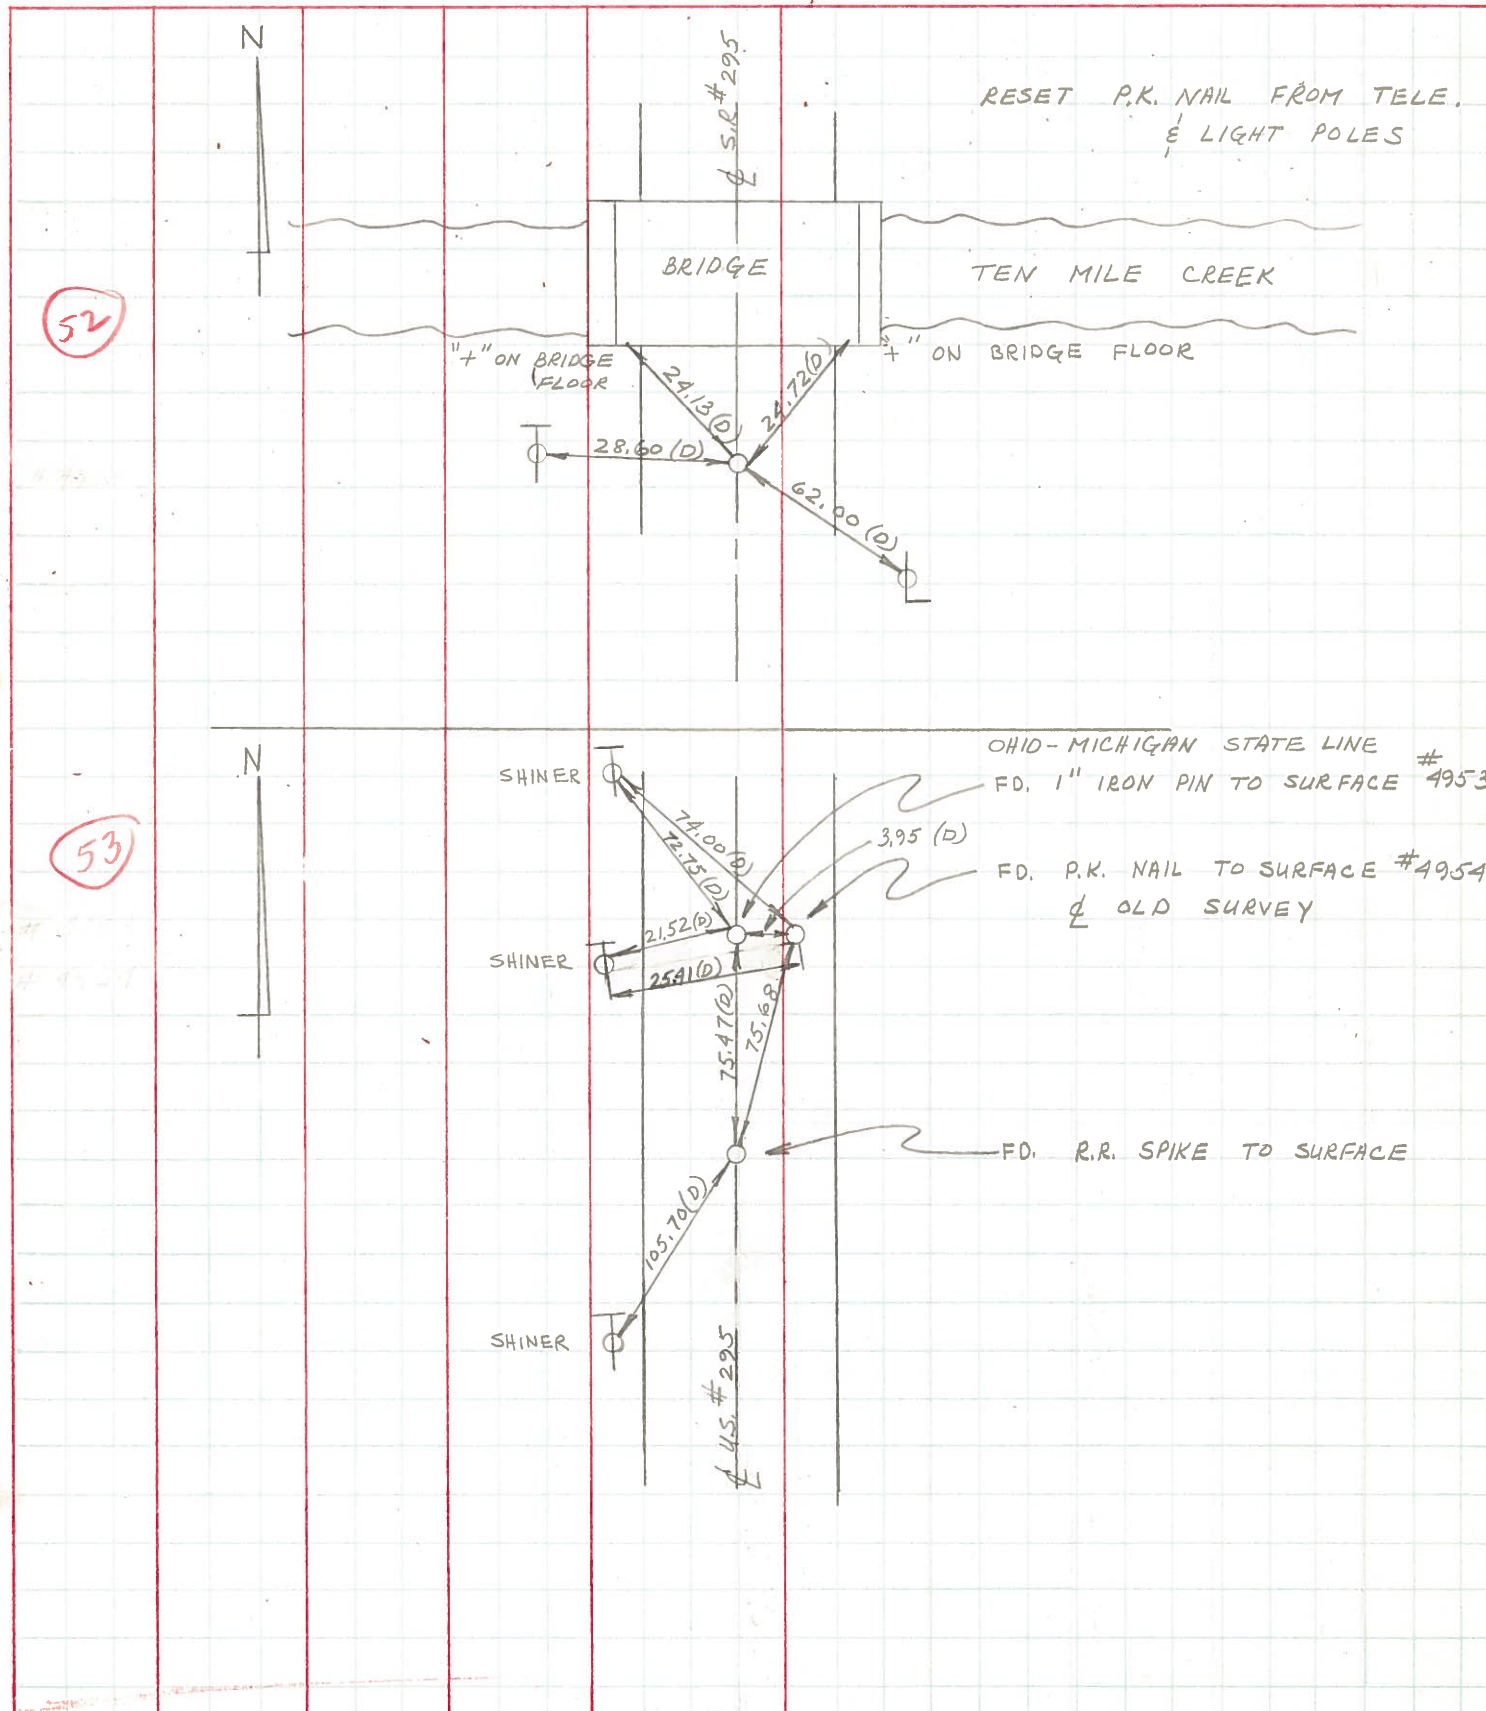 N
℄ S.R. #295
RESET P.K. NAIL FROM TELE.
& LIGHT POLES
BRIDGE
TEN MILE CREEK
52
"+" ON BRIDGE
FLOOR
"+" ON BRIDGE FLOOR
24.13 (D)
24.72 (D)
28.60 (D)
62.00 (D)
N
OHIO-MICHIGAN STATE LINE
SHINER
FD. 1" IRON PIN TO SURFACE #4953
53
74.00 (D)
72.75 (D)
3.95 (D)
FD. P.K. NAIL TO SURFACE #4954
℄ OLD SURVEY
21.52 (D)
SHINER
25.41 (D)
75.47 (D)
75.68
FD. R.R. SPIKE TO SURFACE
105.70 (D)
SHINER
℄ U.S. #295